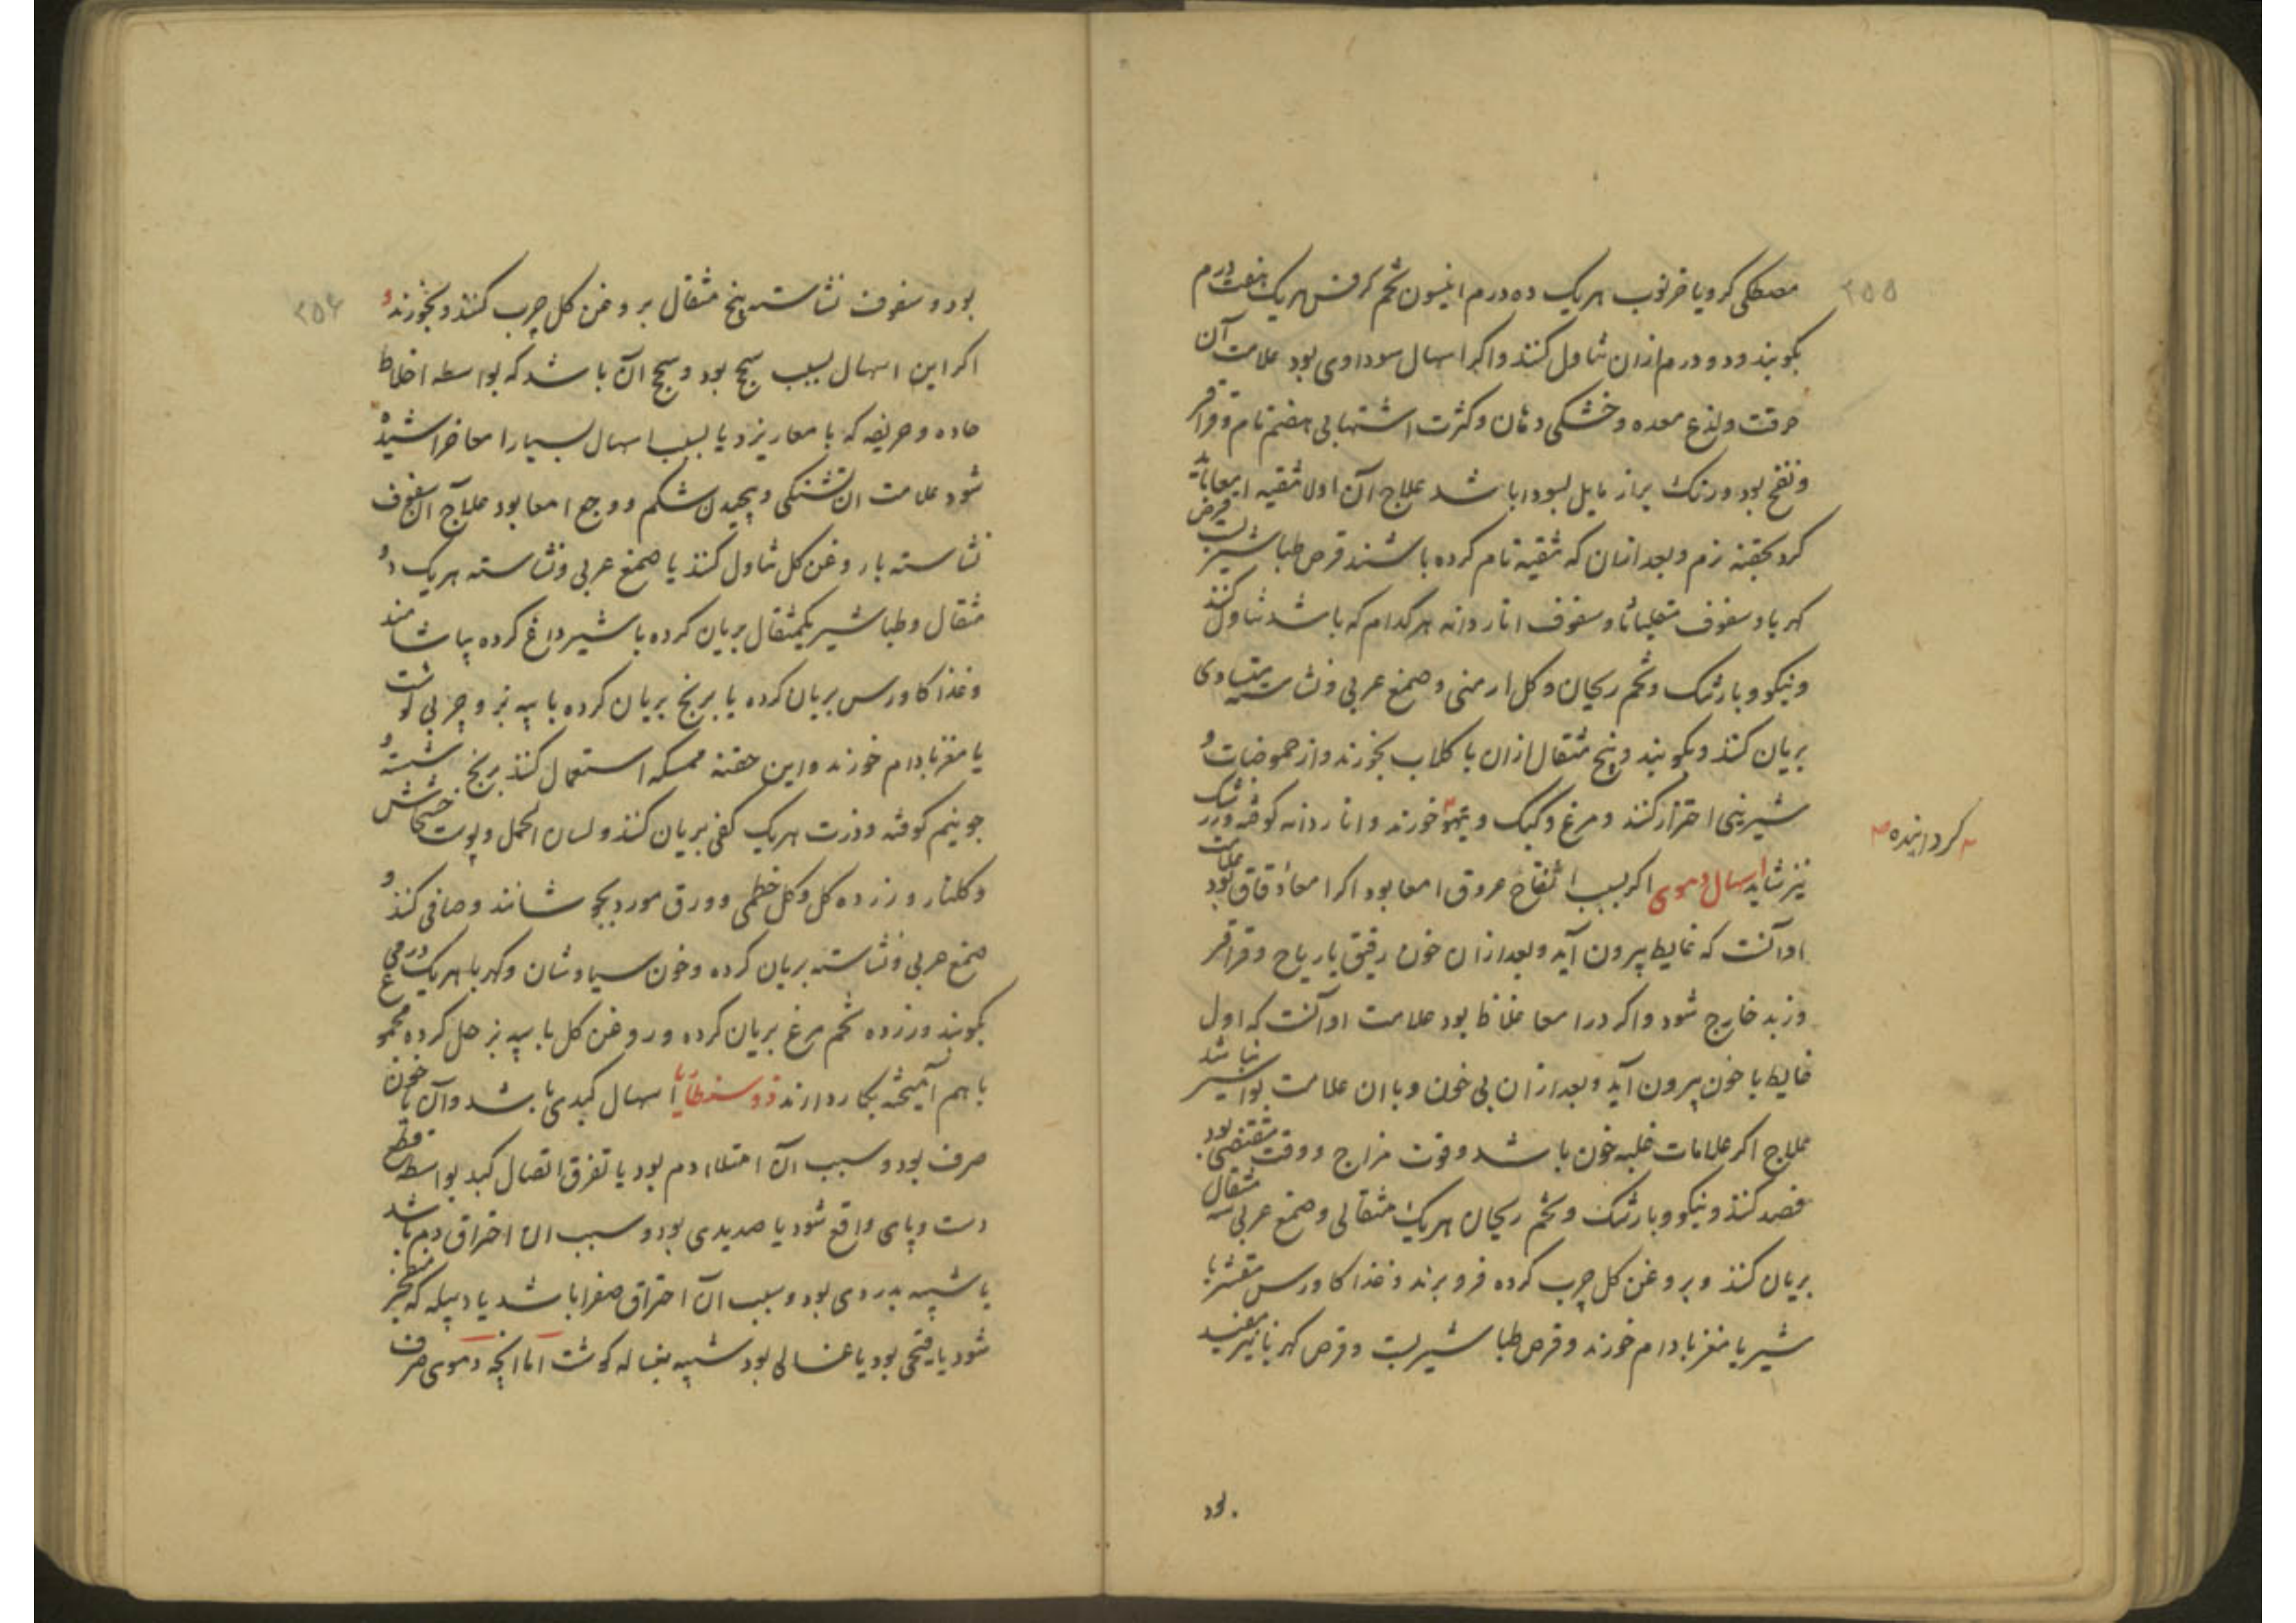 ۲۵۵
مصطکی کرویا خرنوب هریک ده درم انیسون تخم کرفس هریک هفت درم
بکوبند و دو درم ازان تناول کنند و اکر اسهال سوداوی بود علامت آن
حرقت و لذع معده و خشکی دهان و کثرت اشتها بی هضم تام و قراقر
و نفخ بود و رنک براز مایل بسودا باشد علاج آن اولا تنقیه امعا باید
کرد بحقنه نرم و بعد ازان که تنقیه تام کرده باشند قرص طباشیر بست قرص
کهربا و سفوف مقلیاثا و سفوف اناردانه هرکدام که باشد تناول کنند
و نیکو و بارتنک و تخم ریحان و کل ارمنی و صمغ عربی و نشاسته متساوی
بریان کنند و بکوبند و پنج مثقال ازان با کلاب بخورند و از حموضات و
شیرینی احتراز کنند و مرغ و کبک و تیهو خورند و اناردانه کوفته و زرشک
کردانیده
نیز شاید اسهال دموی اکر بسبب انفتاح عروق امعا بود اکر امعا دقاق بود علامت
او آنست که غایط بیرون آید و بعد ازان خون رقیق با ریاح و قراقر
و زبد خارج شود و اکر در امعا غلاظ بود علامت او آنست که اول
غایط با خون بیرون آید و بعد ازان بی خون و با ان علامت بواسیر نباشد
علاج اکر علامات غلبه خون باشد و قوت مزاج و وقت مقتضی بود
فصد کنند و نیکو و بارتنک و تخم ریحان هریک مثقالی و صمغ عربی سه مثقال
بریان کنند و بروغن کل چرب کرده فرو برند و غذا کاورس مقشر با
شیر با مغز بادام خورند و قرص طباشیر بست و قرص کهربا نیز مفید
بود
۲۵۶
بود و سفوف نشاسته پنج مثقال بروغن کل چرب کنند و بخورند و
اکر این اسهال بسبب سحج بود و سحج آن باشد که بواسطه اخلاط
حاده و حریفه که با معا ریزد یا بسبب اسهال بسیار امعا خراشیده
شود علامت ان تشنکی و پیچیدن شکم و وجع امعا بود علاج آن سفوف
نشاسته با روغن کل تناول کنند یا صمغ عربی و نشاسته هریک دو
مثقال و طباشیر یکمثقال بریان کرده با شیر داغ کرده بیاشامند
و غذا کاورس بریان کرده یا برنج بریان کرده با پیه بز و چربی کوشت
یا مغز بادام خورند و این حقنه ممسکه استعمال کنند برنج شسته و
جو نیم کوفته و ذرت هریک کفی بریان کنند و لسان الحمل و پوست خشخاش
و کلنار و زرده کل و کل خطمی و ورق مورد بجوشانند و صافی کنند و
صمغ عربی و نشاسته بریان کرده و خون سیاوشان و کهربا هریک درمی
بکوبند و زرده تخم مرغ بریان کرده و روغن کل با پیه بز حل کرده مجموع
با هم آمیخته بکار دارند ذوسنطاریا اسهال کبدی باشد و آن یا خون
صرف بود و سبب ان امتلاء دم بود یا تفرق اتصال کبد بواسطه قطع
دست و پای واقع شود یا صدیدی بود و سبب ان احتراق دم باشد
یا شبیه بدردی بود و سبب ان احتراق صفرا باشد یا دبیله که منفجر
شود یا قیحی بود یا غسالی بود شبیه بغساله کوشت اما انچه دموی صرف